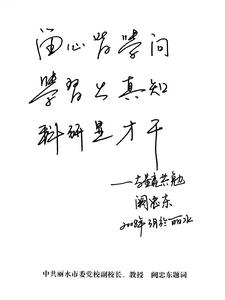 留心皆学问
学习出真知
科研显才干
——与诸君共勉
阙忠东
2008年3月于丽水
中共丽水市委党校副校长、教授 阙忠东题词